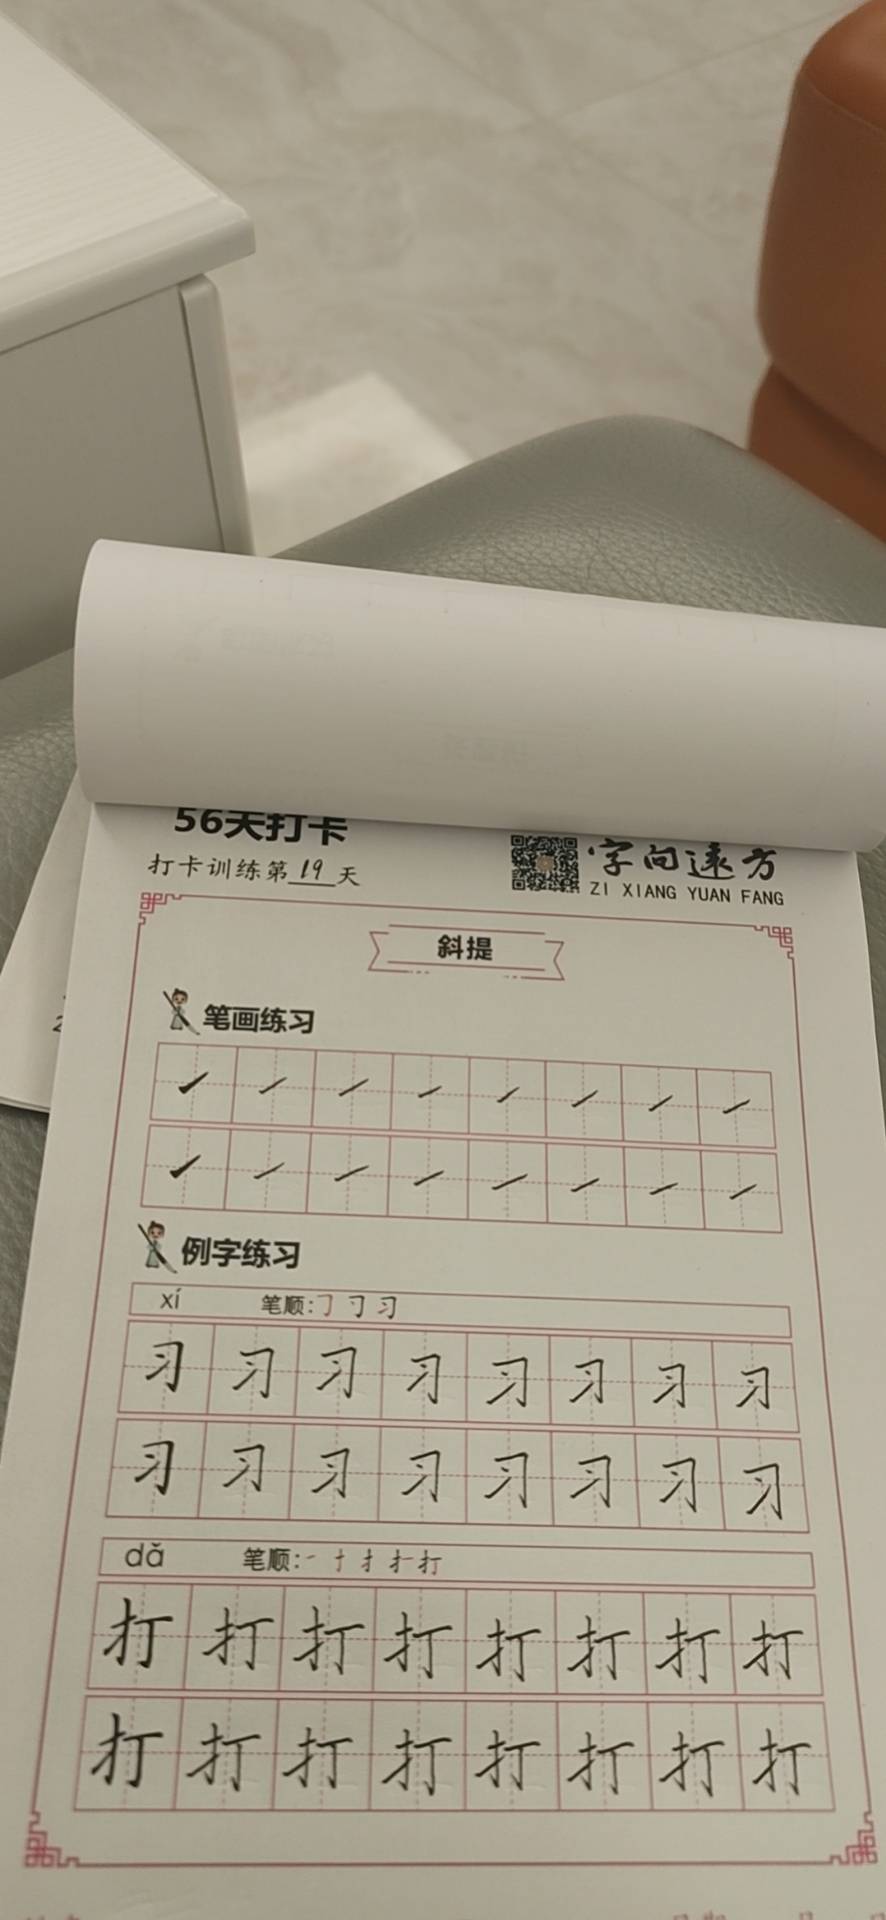 56天打卡
打卡训练第19天
字向远方
ZI XIANG YUAN FANG
斜提
笔画练习
例字练习
xí 笔顺:
习 习 习 习 习 习 习 习
习 习 习 习 习 习 习 习
dǎ 笔顺:
打 打 打 打 打 打 打 打
打 打 打 打 打 打 打 打